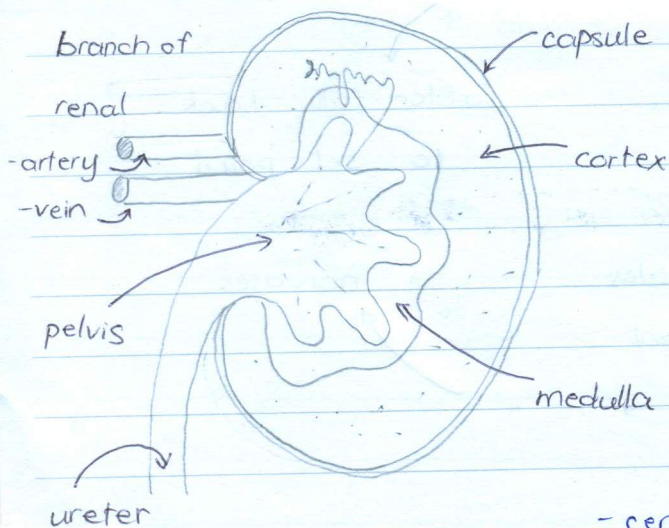 branch of
renal
-artery
-vein
pelvis
ureter
capsule
cortex
medulla